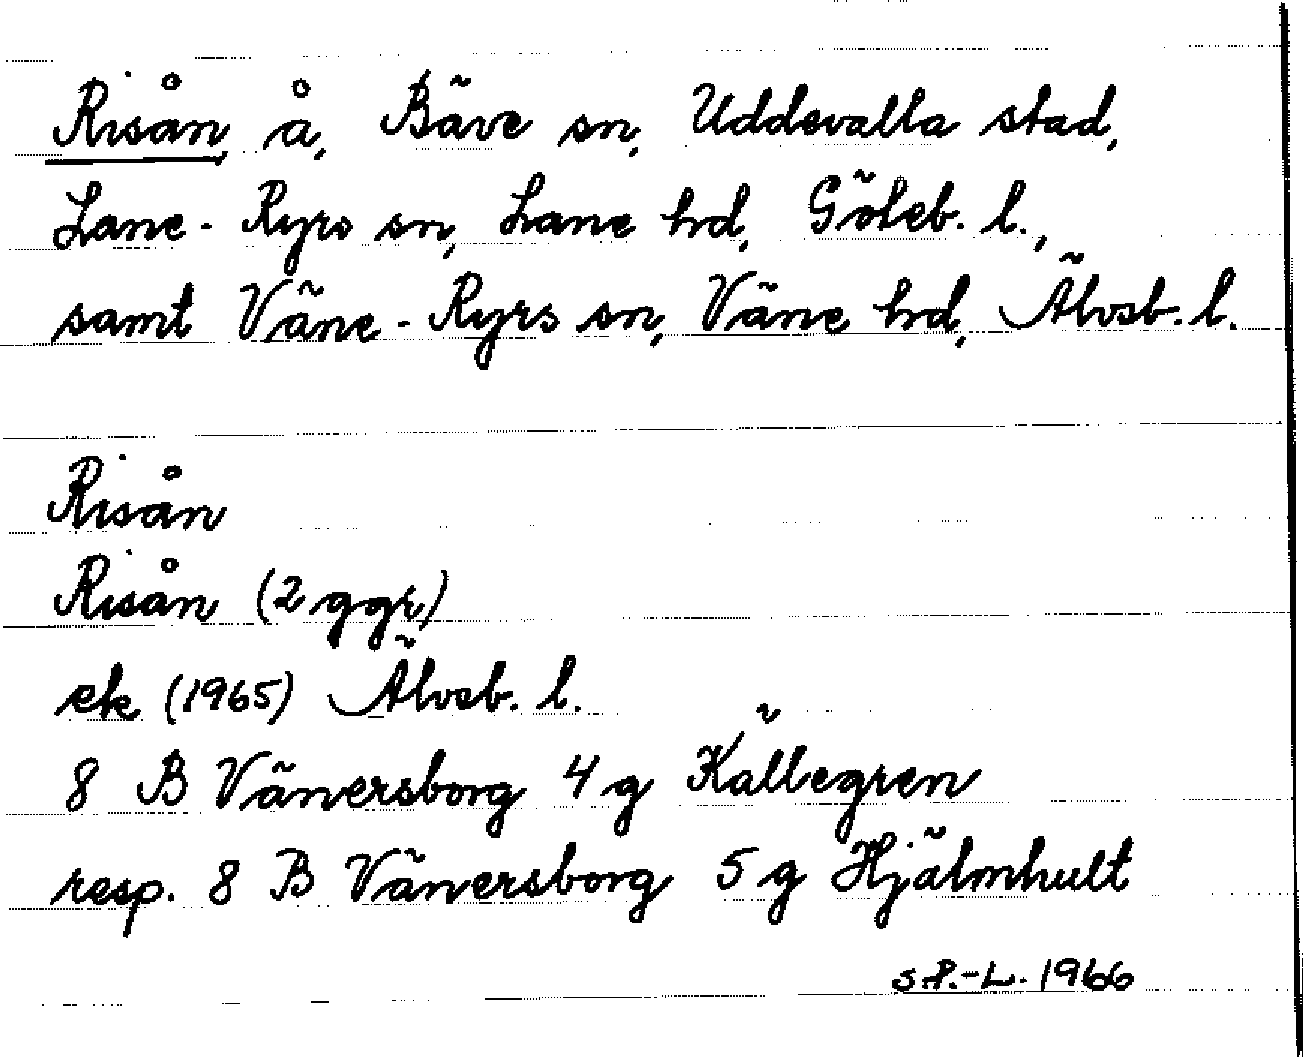 Risån, å, Bäve sn, Uddevalla stad,
Lane-Ryrs sn, Lane hd, Göteb. l.,
samt Väne-Ryrs sn, Väne hd, Älvsb. l.
Risån
Risån (2 ggr)
ek (1965) Älvsb. l.
8 B Vänersborg 4 g Källegren
resp. 8 B Vänersborg 5 g Hjälmhult
S.P.-L. 1966